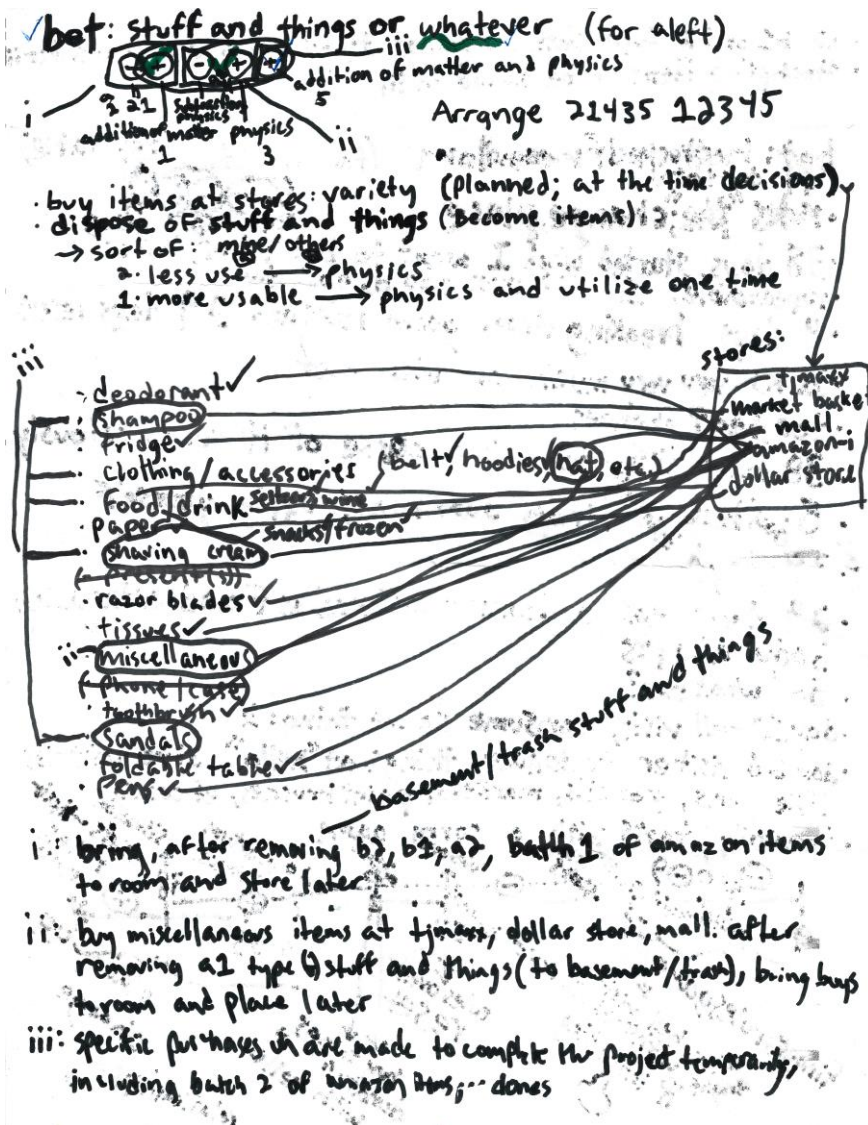 bet: stuff and things or whatever (for aleft)
iii
addition of matter and physics
5
i
2 1
subtraction
physics
addition of matter physics
1
3
ii
Arrange 21435 12345
· buy items at stores: variety (planned; at the time decisions)
· dispose of stuff and things (become items)
→ sort of: mine/others
2. less use → physics
1. more usable → physics and utilize one time
iii
stores:
tjmaxx
market basket
mall
amazon-i
dollar store
· deodorant ✓
· shampoo
· fridge ✓
· clothing/accessories (belt ✓, hoodies, hat, etc.)
· food/drink seltzers wine
· paper ✓ snacks/frozen ✓
· shaving cream
(present(s))
· razor blades ✓
· tissues ✓
ii
· miscellaneous
(phone/case)
· toothbrush ✓
· sandals
· foldable table ✓
· pens ✓
basement/trash stuff and things
i: bring, after removing b2, b1, a2, batth 1 of amazon items
to room and store later
ii: buy miscellaneous items at tjmaxx, dollar store, mall. after
removing a1 type(s) stuff and things (to basement/trash), bring buys
to room and place later
iii: specific purchases are made to complete the project temporarity,
including batch 2 of amazon items, ... dones